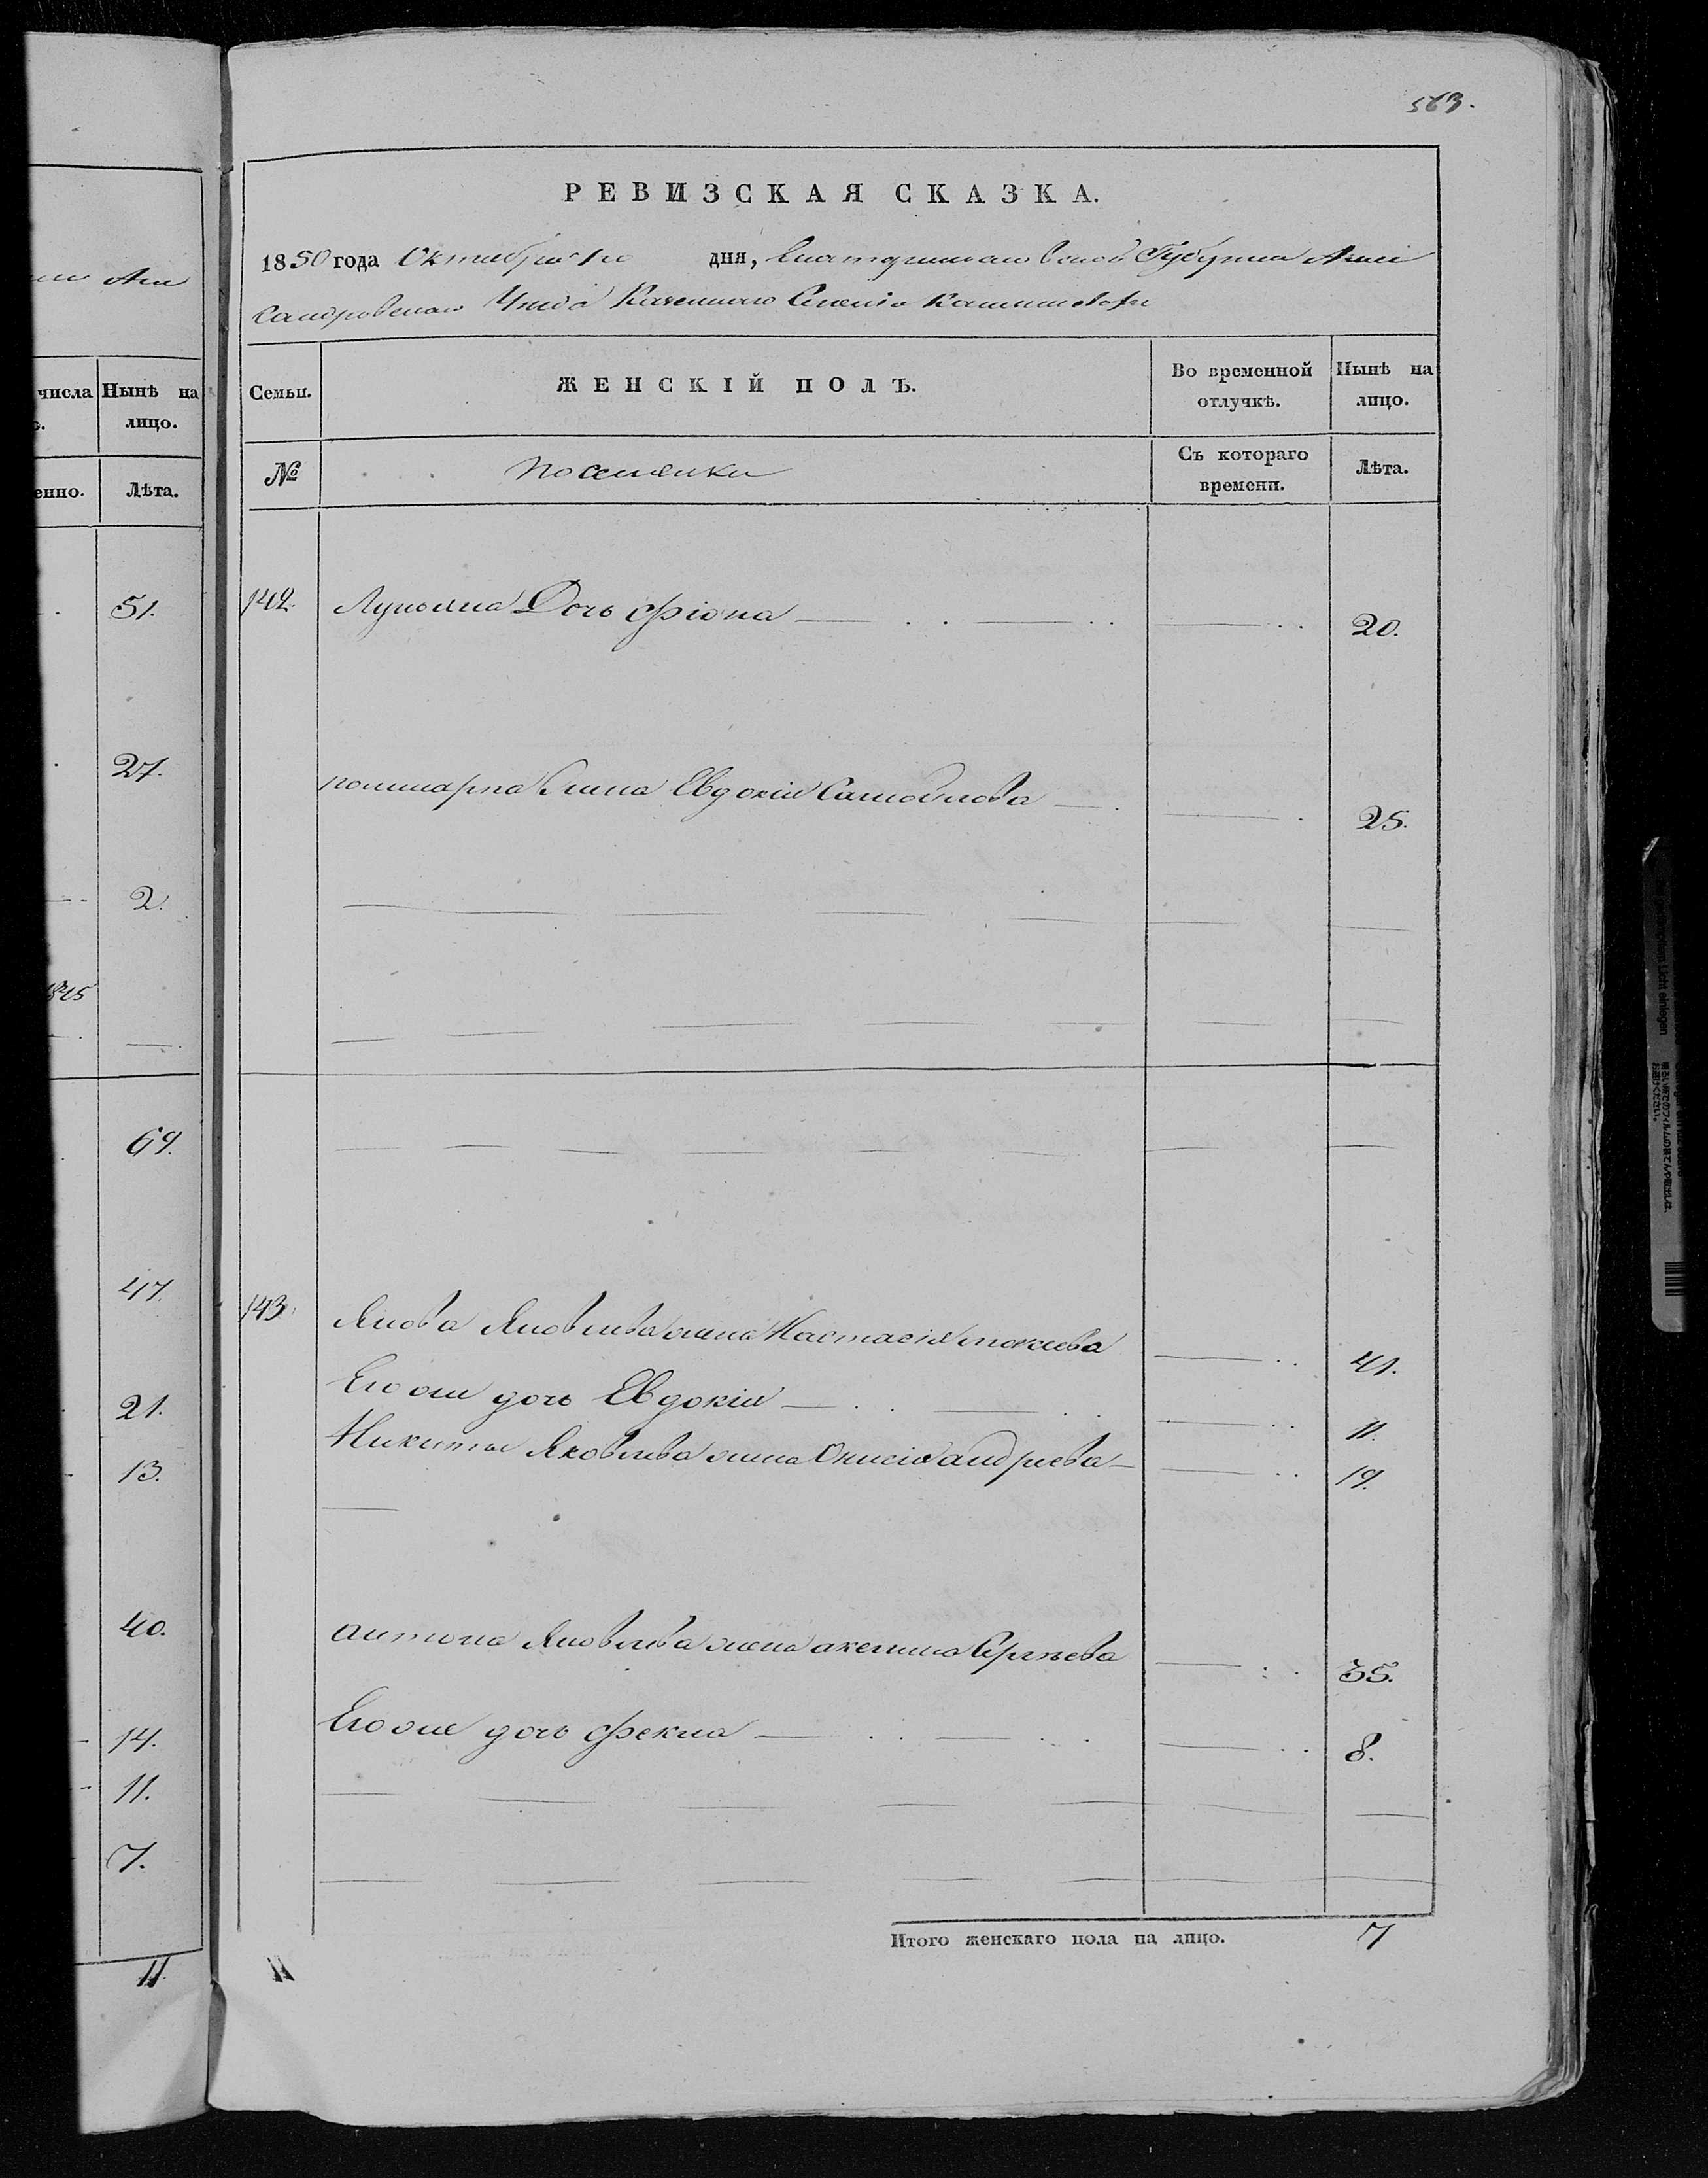 563.
РЕВИЗСКАЯ СКАЗКА.
1850 года Октября дня, Екатеринославской Губернии Алек
сандровскаго Уезда Казеннаго Селенія
числа
Нынѣ на лицо.
Семьи.
ЖЕНСКІЙ ПОЛЪ.
Во временной отлучкѣ.
Нынѣ на лицо.
енно.
Лѣта.
№
поселянки
Съ котораго времени.
Лѣта.
51.
142.
Лукьяна Дочь Фіона
20.
27.
поликарпа Жена Евдокия Самойлова
25.
2.
1845
69.
47.
143.
Якова Яковлева жена Настасія мокеева
41.
Его же дочь Евдокія
11.
21.
Никиты Яковлева жена андреева
19.
13.
40.
антона Яковлева жена акелина Сергѣева
35.
Его же дочь Фекла
8.
14.
11.
7.
Итого женскаго пола на лицо.
7
11.